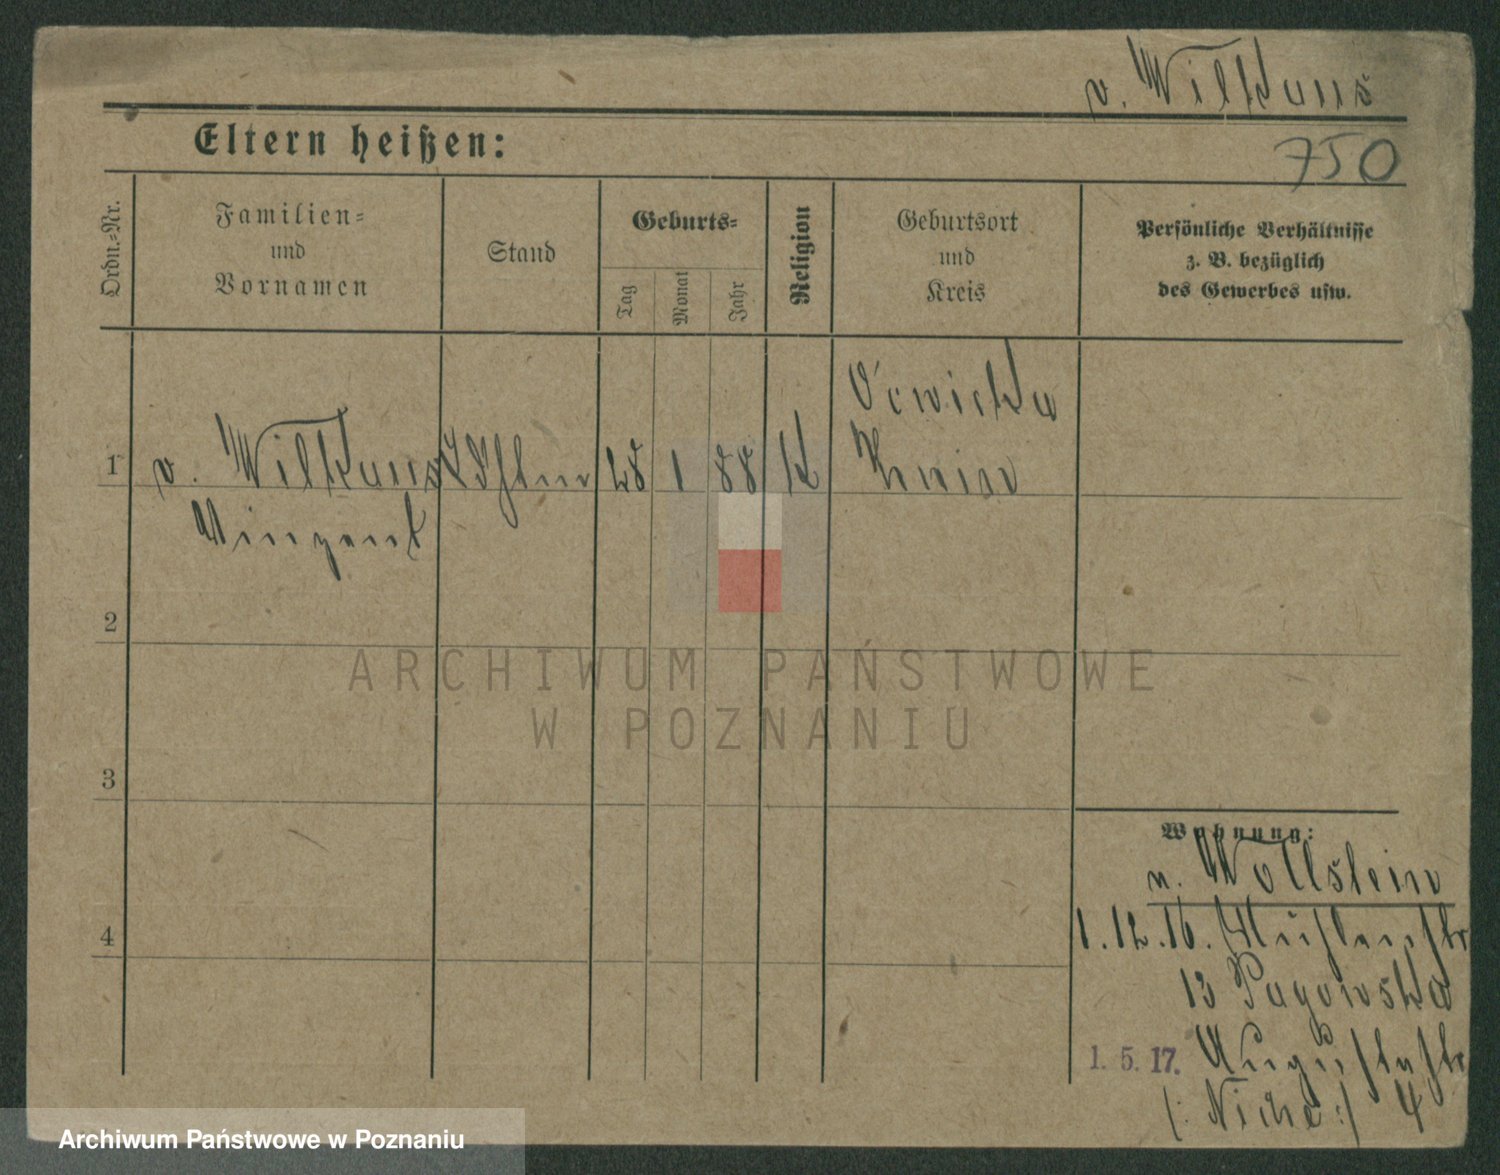 v. Wilkans
Eltern heißen:
750
Ordn.-Nr.
Familien-
und
Vornamen
Stand
Geburts-
Tag
Monat
Jahr
Religion
Geburtsort
und
Kreis
Persönliche Verhältnisse
z. B. bezüglich
des Gewerbes usw.
1 v. Wilkans 28 1 88 K
Vinzent
2
3
4
Wohnung:
n. Wollstein
1.12.16. Mühlenstr
13 Pagowska
1. 5. 17. Augustastr
4
ARCHIWUM PAŃSTWOWE
W POZNANIU
Archiwum Państwowe w Poznaniu